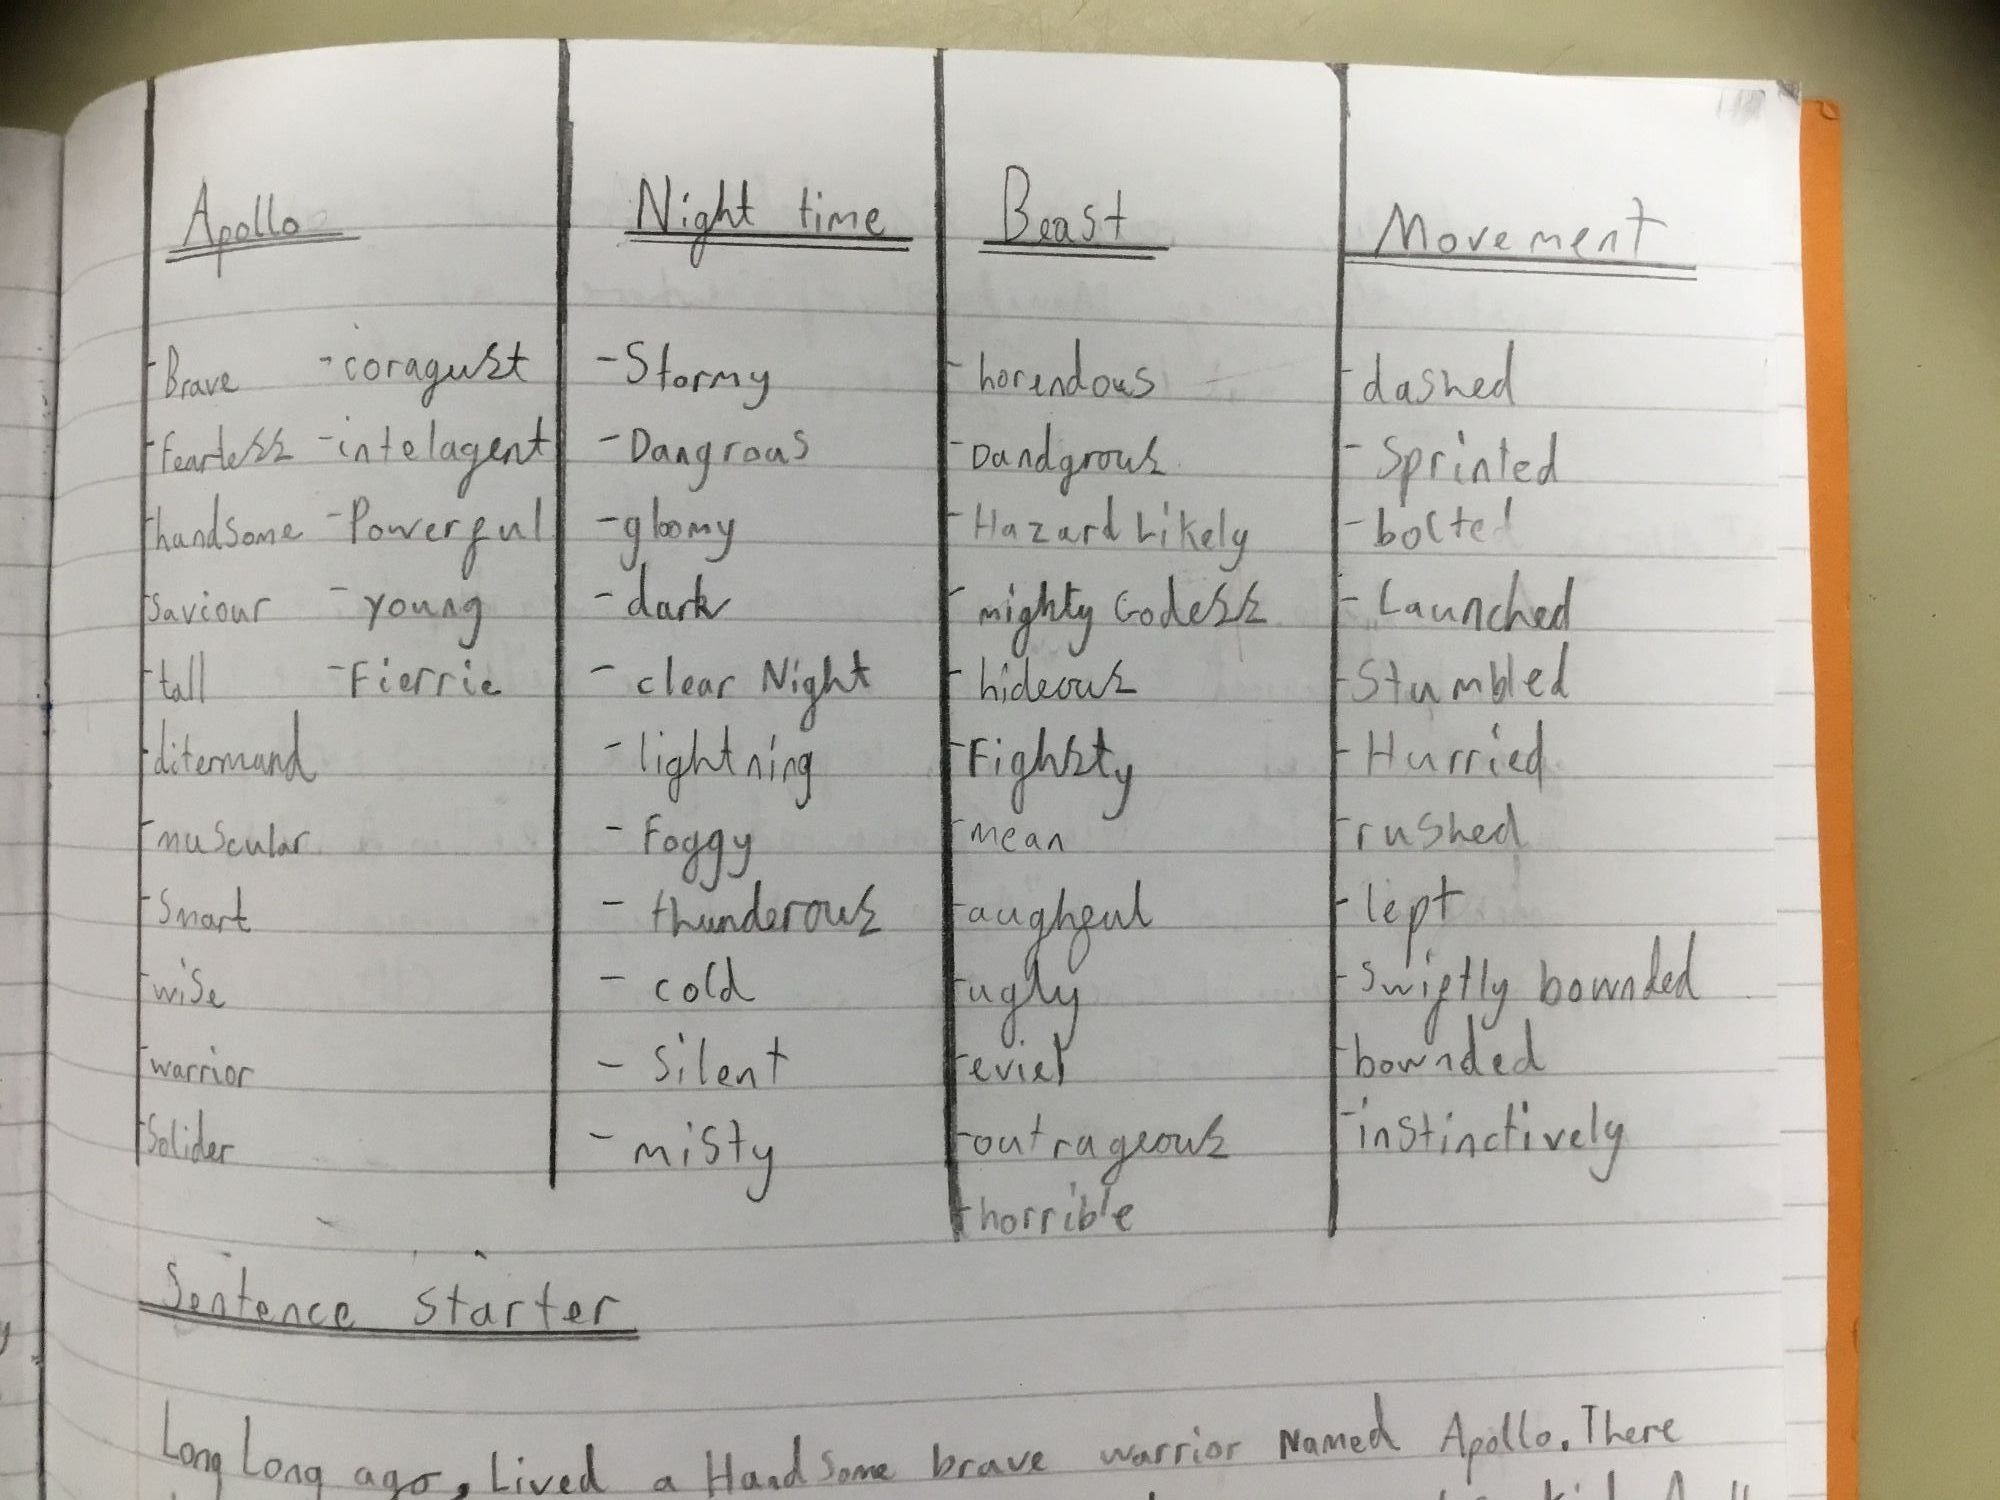 Apollo Night time Beast Movement
-Brave -coragust -Stormy -horendous -dashed
-fearless -intelagent -Dangrous -Dandgrous -Sprinted
-handsome -Powerful -gloomy -Hazard Likely -bolted
-saviour -young -dark -mighty Godess -Launched
-tall -Fierrie -clear Night -hideous -Stumbled
-ditermand -lightning -Fighsty -Hurried
-muscular -Foggy -mean -rushed
-Smart -thunderous -aughful -lept
-wise -cold -ugly -swiftly bownded
-warrior -Silent -eviel -bownded
-Solider -misty -outrageous -instinctively
-horrible
Sentence starter
Long Long ago, Lived a Handsome brave warrior Named Apollo. There